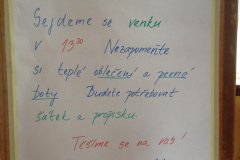 Sejdeme se venku
v 13³⁰ Nezapomeňte
si teplé oblečení a pevné
boty Budete potřebovat
šátek a propisku.
Těšíme se na vás!